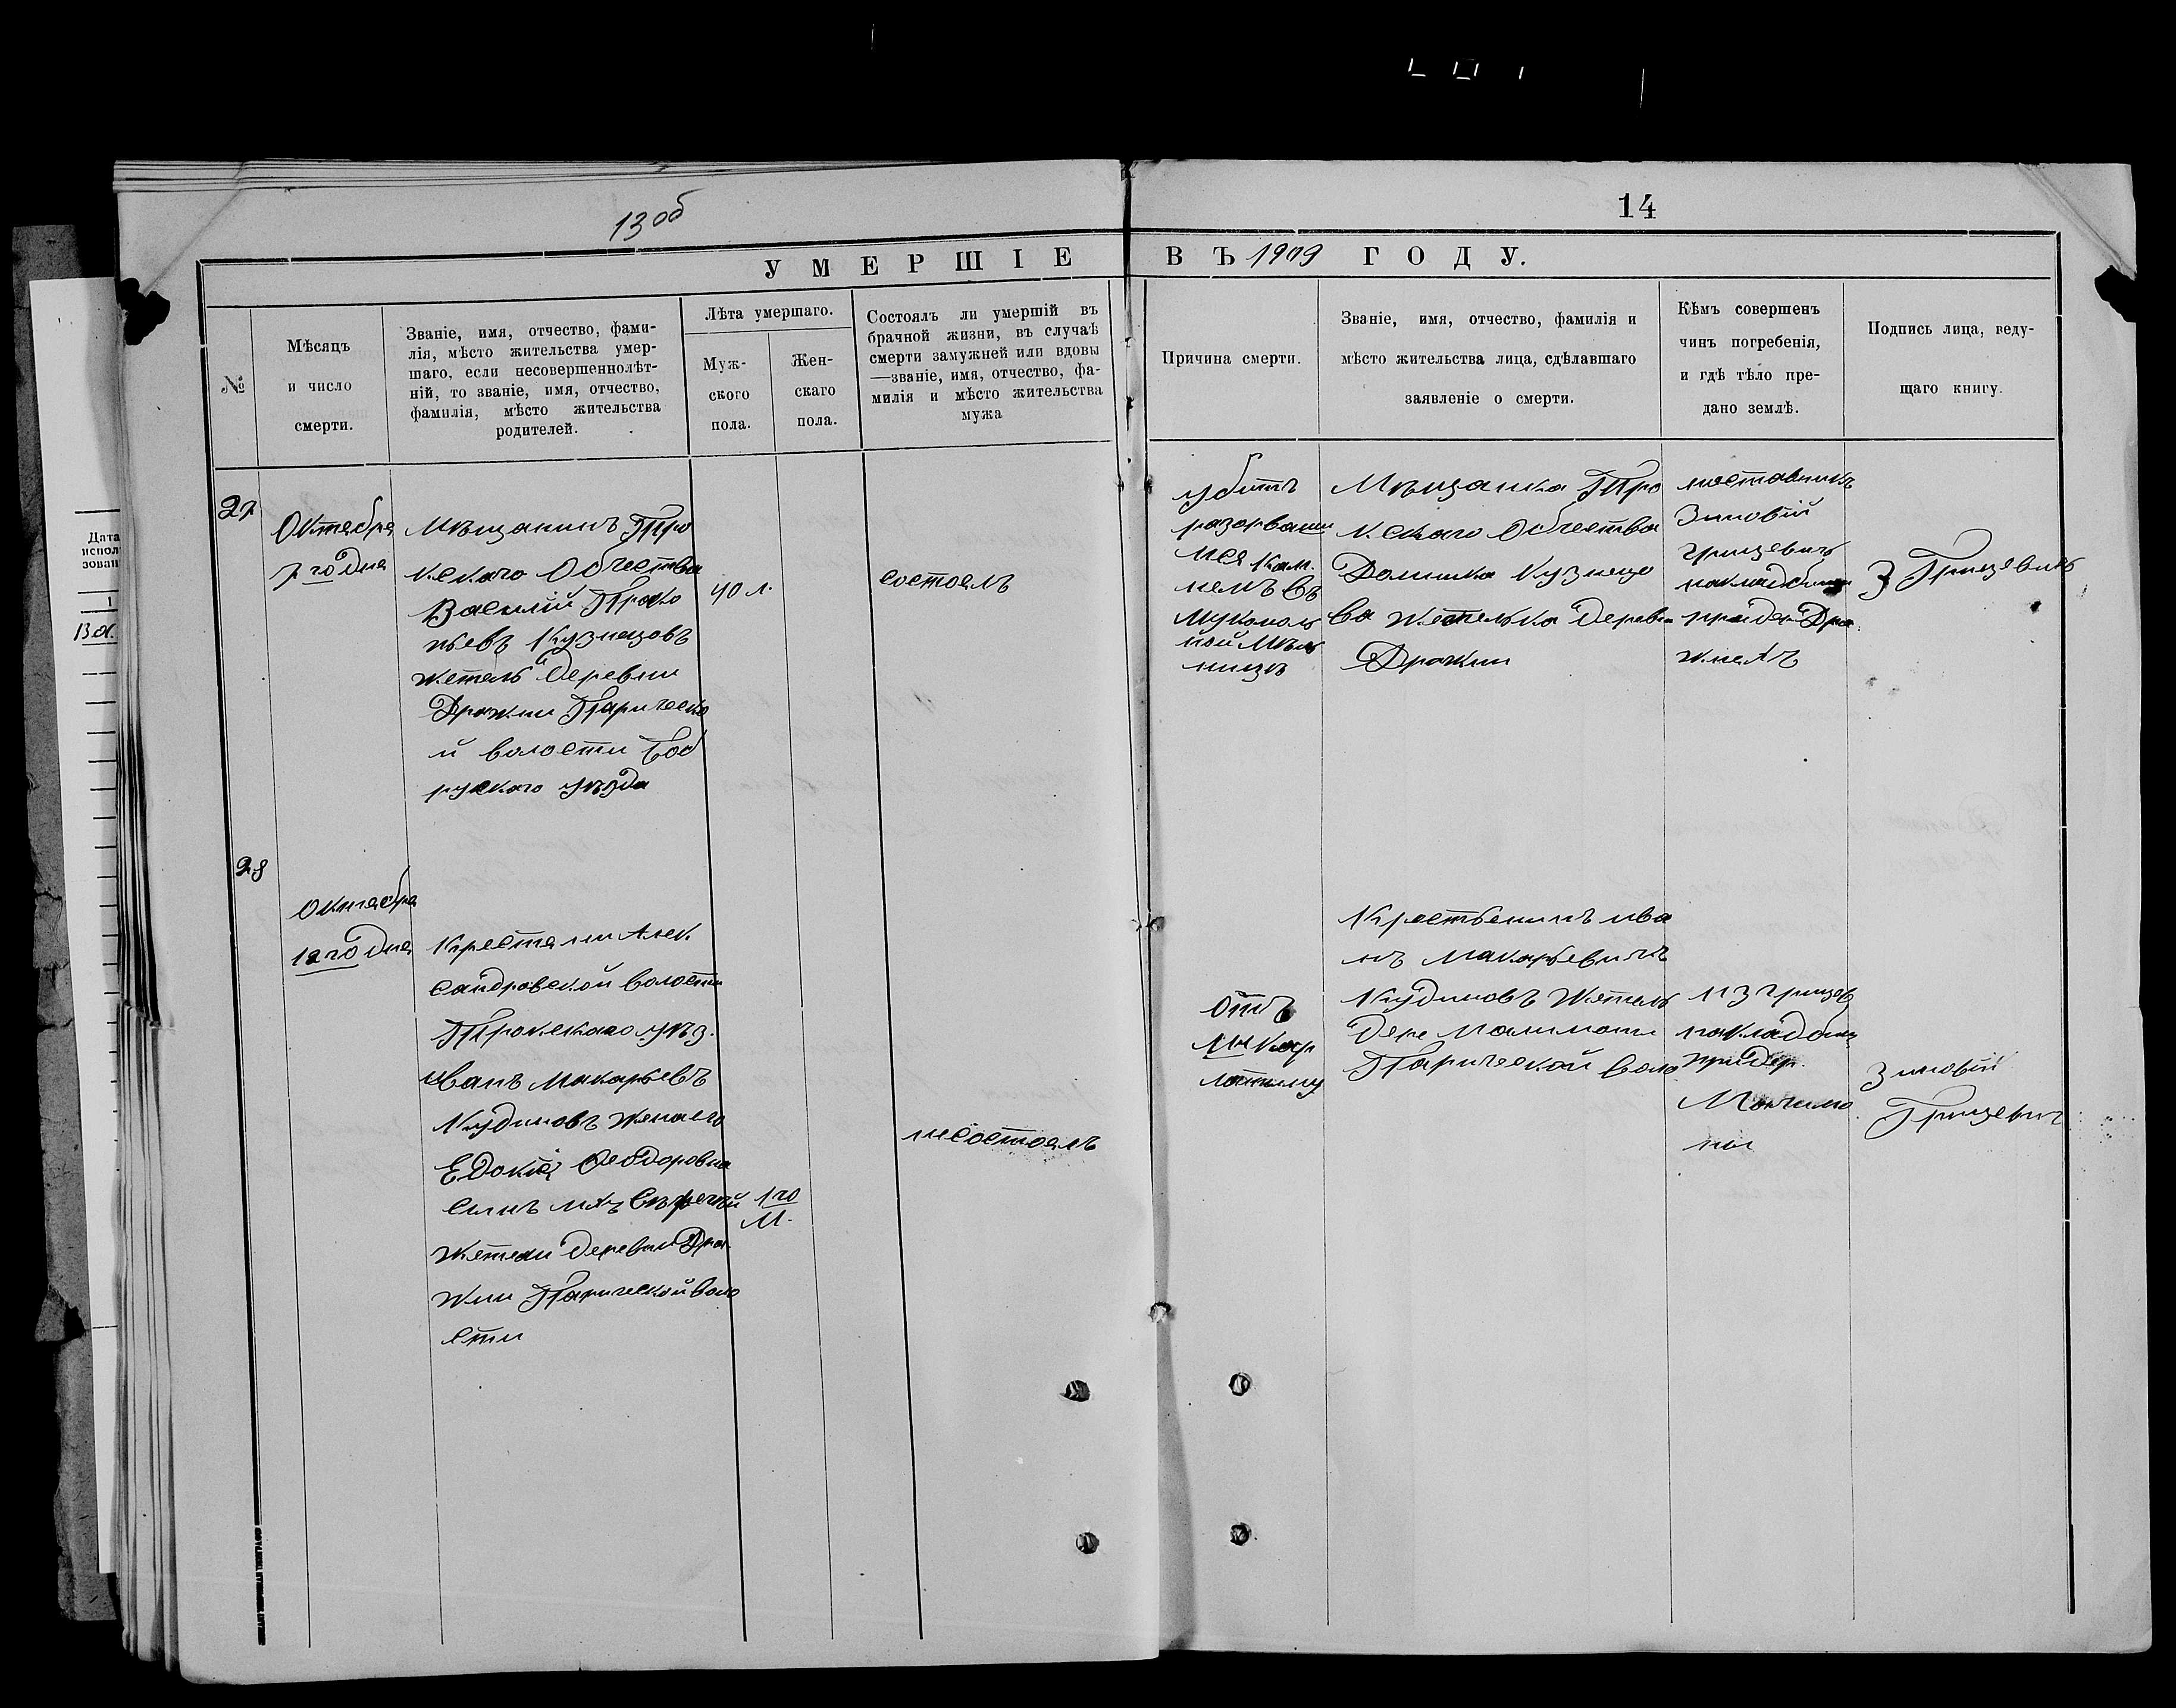 13 об
14
УМЕРШІЕ ВЪ 1909 ГОДУ.
№
Мѣсяцъ
и число
смерти.
Званіе, имя, отчество, фами-
лія, мѣсто жительства умер-
шаго, если несовершеннолѣт-
ній, то званіе, имя, отчество,
фамилія, мѣсто жительства
родителей.
Лѣта умершаго.
Муж-
ского
пола.
Жен-
скаго
пола.
Состоялъ ли умершій въ
брачной жизни, въ случаѣ
смерти замужней или вдовы
—званіе, имя, отчество, фа-
милія и мѣсто жительства
мужа
Причина смерти.
Званіе, имя, отчество, фамилія и
мѣсто жительства лица, сдѣлавшаго
заявленіе о смерти.
Кѣмъ совершенъ
чинъ погребенія,
и гдѣ тѣло пре-
дано землѣ.
Подпись лица, веду-
щаго книгу.
27
Октебря
7 го дня
Мѣщанинъ Тро
кскаго Обчества
Василій Проко
пьевъ Кузнецовъ
жетель деревни
Дражни Парическо
й волости Боб
руского уѣзда
40 л.
состоялъ
убитъ
разорвавши
мся кам.
немъ въ
мукомоль
ной мѣль
ницѣ
Мѣщанка Тро
кскаго Обчества
Кузнецо
ва жетелька деревн
Дражни
наставникъ
Зиновій
Грицевичъ
на кладбищи
при де Дра
жнехъ
З Грицевичъ
28
Октебря
12 го дня
Крестяни Алек
сандровской волости
Трокскаго уѣз.
Иванъ Макарьевъ
Кудиновъ жена его
Едокія Феодоровна
сынъ ихъ
жетели деревни Дра
жни Парической воло
сти
1 го
М.
несостоялъ
Отъ
Крестьенинъ ива
нъ Макарьевичъ
Кудиновъ жетель
дере
Парической воло
Н З Грицев
на кладбищ
при дер.
ны
Зиновій
Грицевичъ
Дата
испол
зован
1